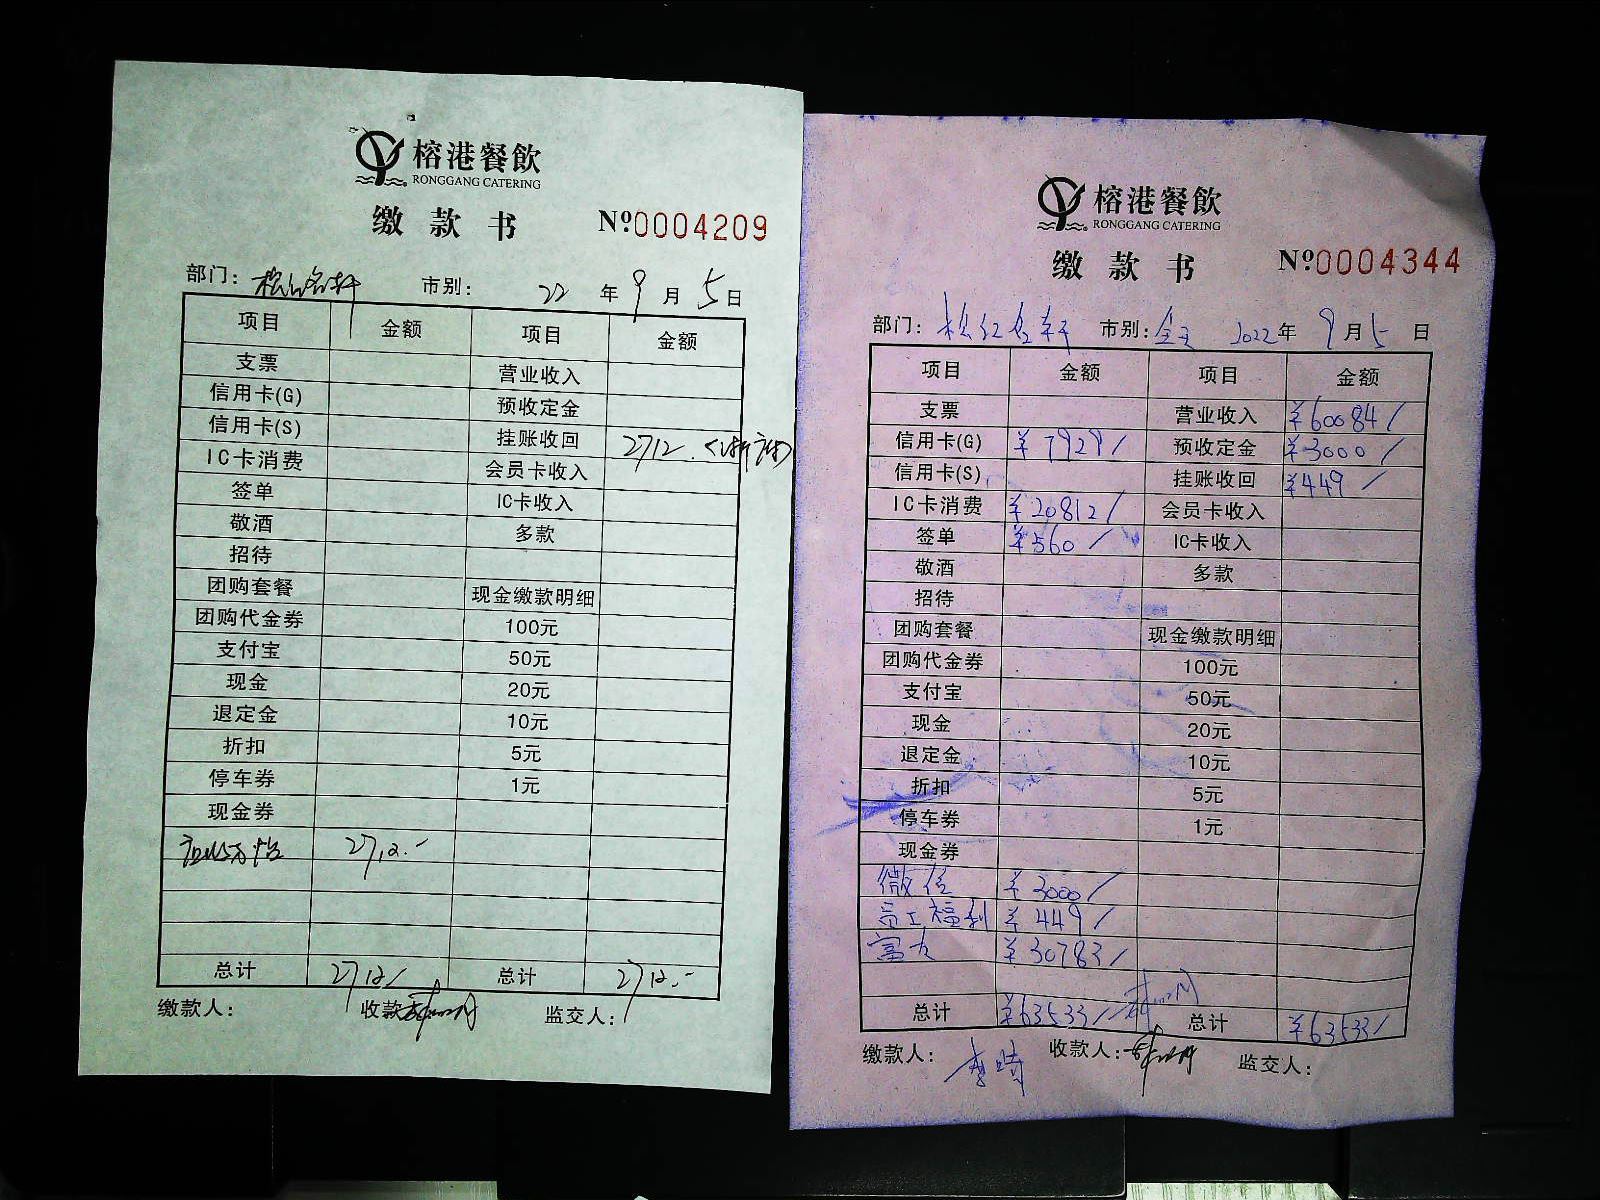 榕港餐飲
RONGGANG CATERING
缴款书 №0004209
部门: 市别: 22年9月5日
项目 金额 项目 金额
支票 营业收入
信用卡(G) 预收定金
信用卡(S) 挂账收回 2712.
IC卡消费 会员卡收入
签单 IC卡收入
敬酒 多款
招待
团购套餐 现金缴款明细
团购代金券 100元
支付宝 50元
现金 20元
退定金 10元
折扣 5元
停车券 1元
现金券
2712.-
总计 2712/ 总计 2712.-
缴款人: 收款 监交人:
榕港餐飲
RONGGANG CATERING
缴款书 №0004344
部门: 松红名轩 市别:全天 2022年9月5日
项目 金额 项目 金额
支票 营业收入 ¥60084/
信用卡(G) ¥7929/ 预收定金 ¥3000/
信用卡(S) 挂账收回 ¥449/
IC卡消费 ¥20812/ 会员卡收入
签单 ¥560/ IC卡收入
敬酒 多款
招待
团购套餐 现金缴款明细
团购代金券 100元
支付宝 50元
现金 20元
退定金 10元
折扣 5元
停车券 1元
现金券
微信 ¥3000/
员工福利 ¥449/
富力 ¥30783/
总计 ¥63533/ 总计 ¥63533/
缴款人: 收款人: 监交人: